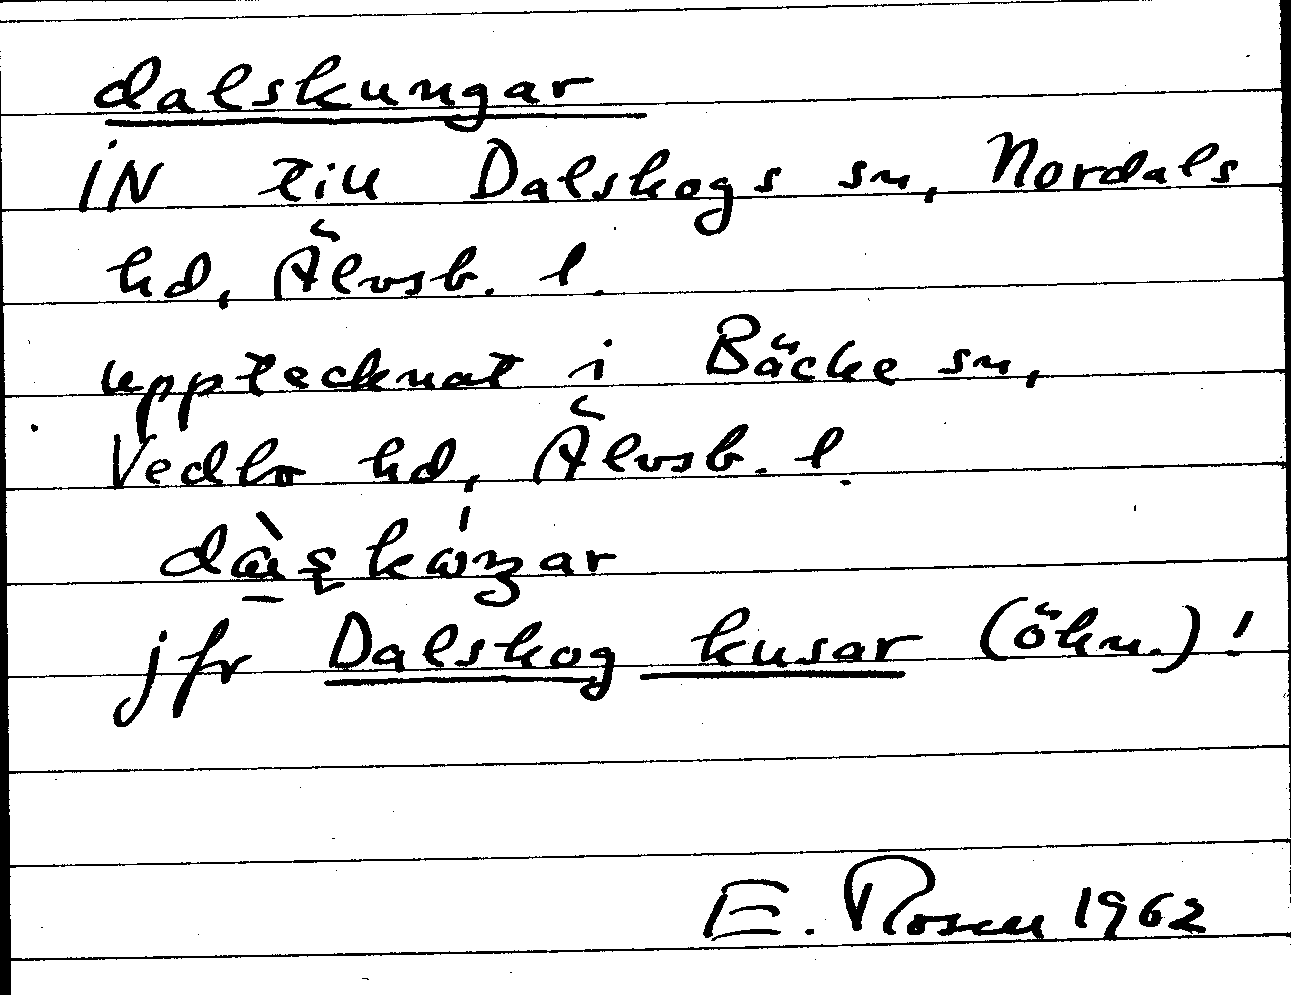 dalskungar
iN till Dalskogs sn, Nordals
hd, Älvsb. l.
upptecknat i Bäcke sn,
Vedbo hd, Älvsb. l.
jfr Dalskog kusar (ökn.)!
E. Rosell 1962